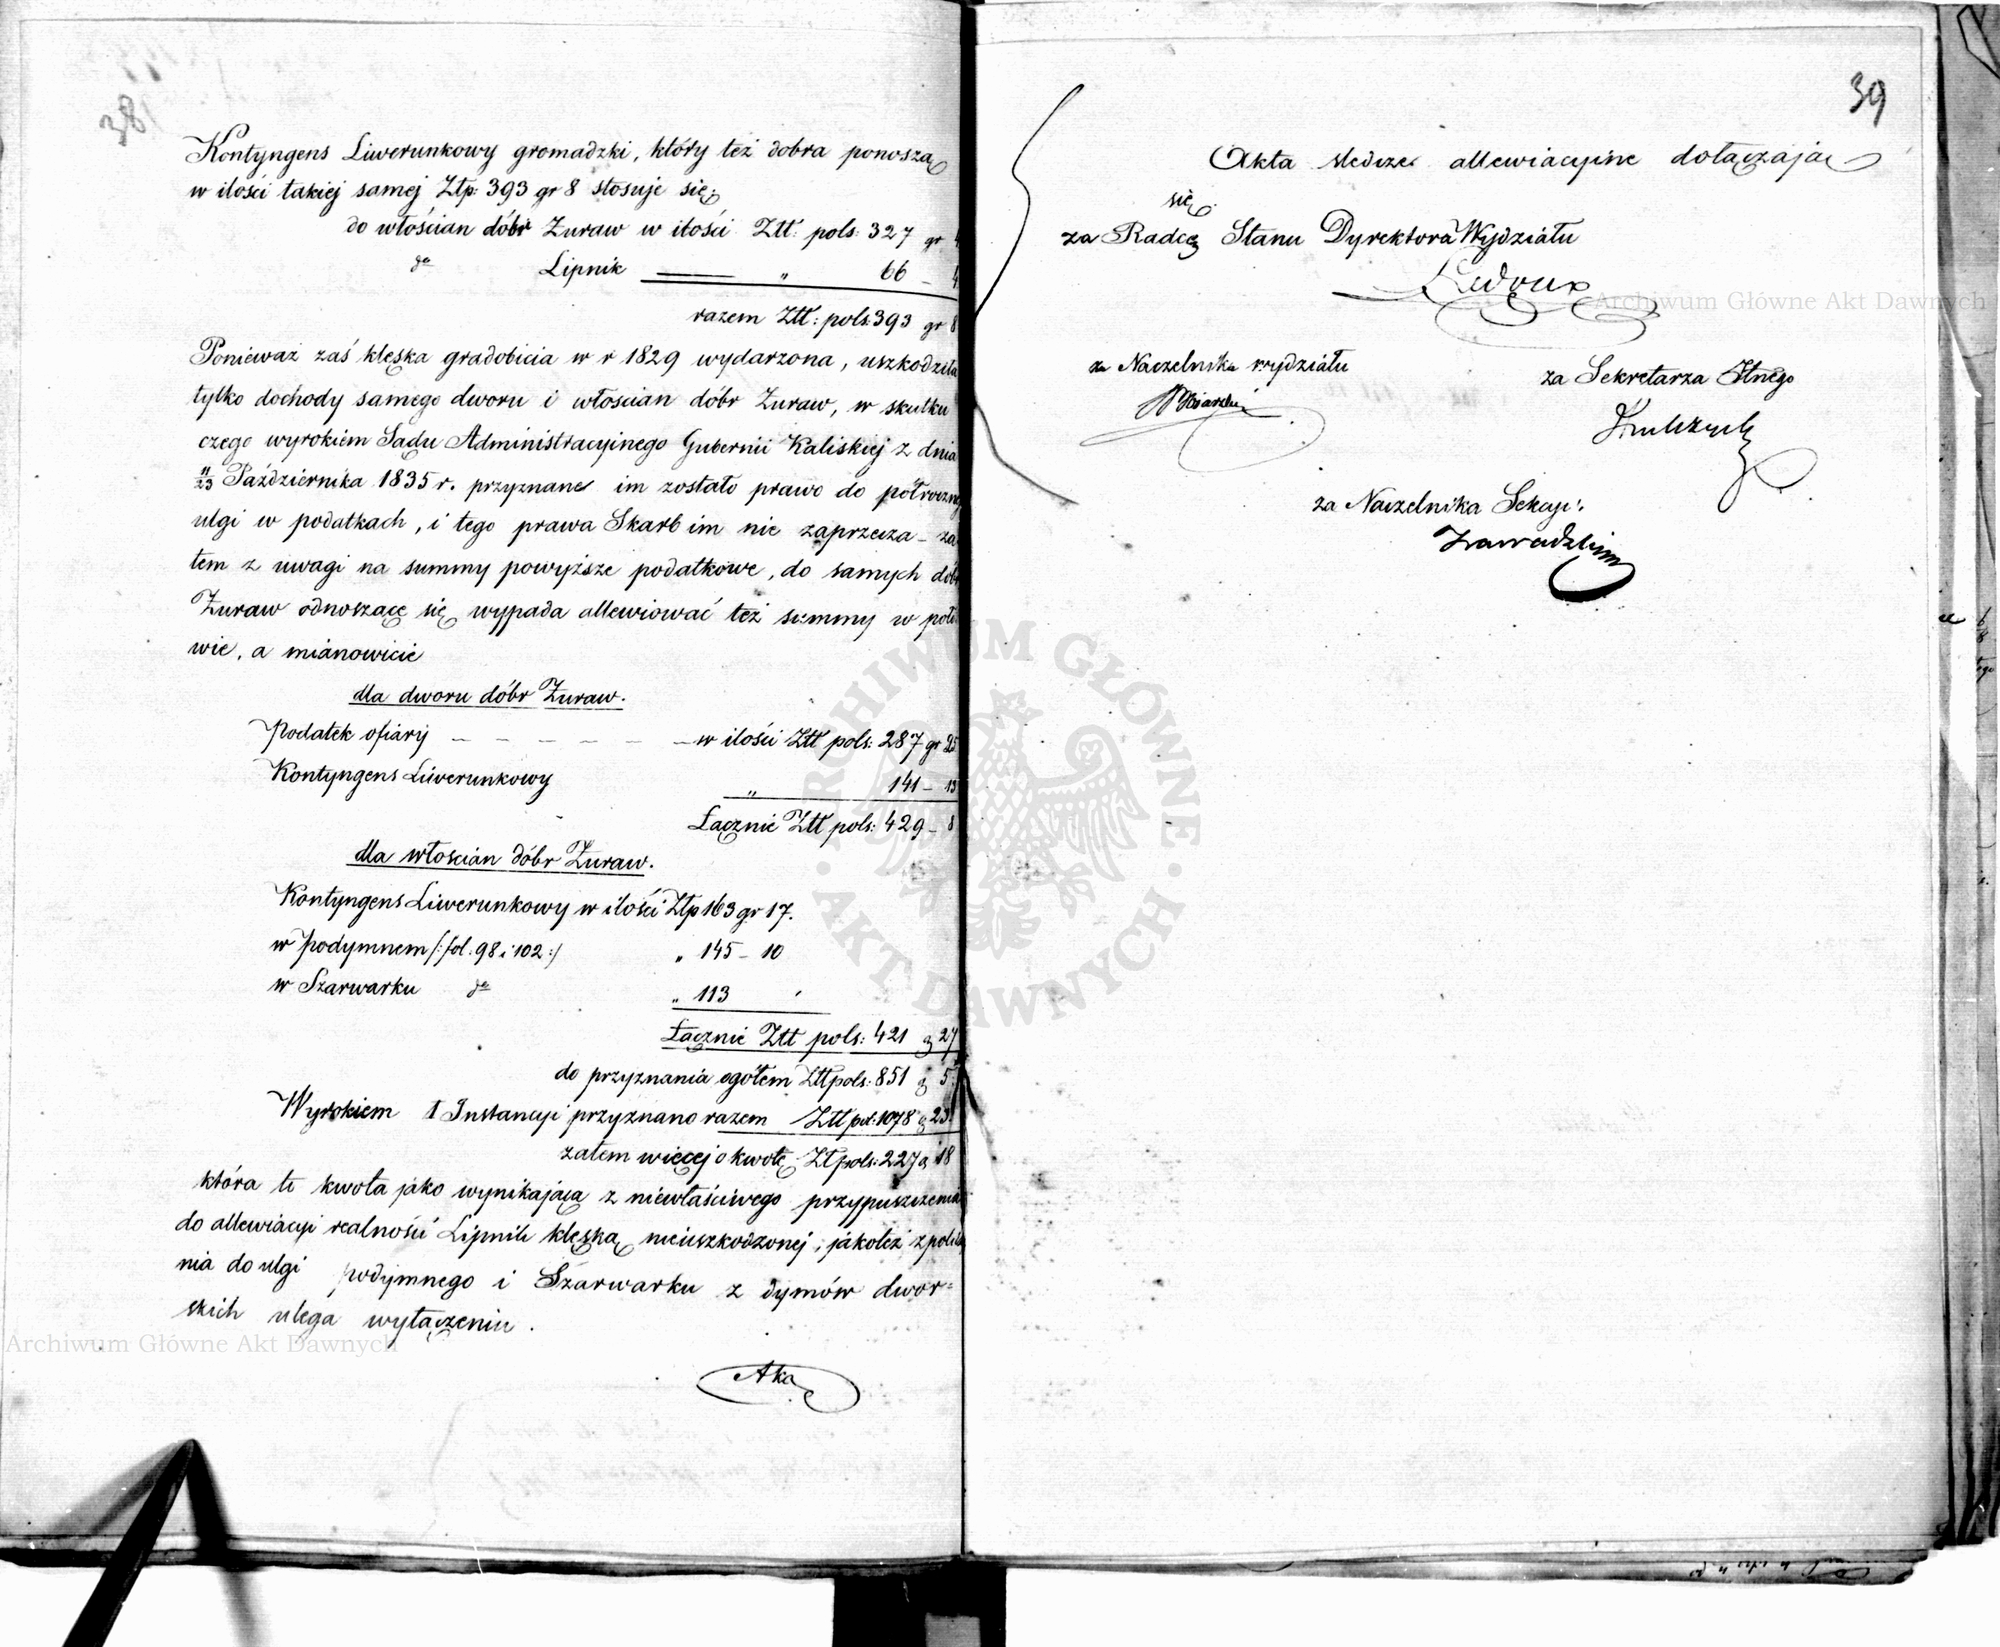 38
Kontyngens Liwerunkowy gromadzki, który też dobra ponoszą
w ilości takiej samej Ztp: 393 gr 8 stosuje się:
do włościan dóbr Żuraw w ilości Ztt: pols: 327 gr 4
do Lipnik „ 66 – 4
razem Ztt: pols: 393 gr 8
Ponieważ zaś klęska gradobicia w r 1829 wydarzona, uszkodziła
tylko dochody samego dworu i włościan dóbr Żuraw, w skutku
czego wyrokiem Sądu Administracyinego Gubernii Kaliskiej z dnia
11/23 Października 1835 r. przyznane im zostało prawo do półroczney
ulgi w podatkach, i tego prawa Skarb im nie zaprzecza – za
tem z uwagi na summy powyższe podatkowe, do samych dóbr
Żuraw odnoszące się wypada allewiować też summy w poło
wie, a mianowicie
dla dworu dóbr Żuraw.
Podatek ofiary – – – – – – – w ilości Ztt pols: 287 gr 25
Kontyngens Liwerunkowy „ 141 – 13
Łącznie Ztt pols: 429 – 8
dla włoscian dóbr Żuraw.
Kontyngens Liwerunkowy w ilości Ztp 163 gr 17.
w Podymnem /: fol. 98 i 102 :/ „ 145 – 10
w Szarwarku do „ 113
Łącznie Ztt pols: 421 g 27
do przyznania ogółem Ztt pols: 851 g 5.
Wyrokiem I Instancyi przyznano razem Ztt pol: 1078 g 23.
zatem więcej o kwotę Zt pols: 227 g 18
która to kwota jako wynikająca z niewłaściwego przypuszczenia
do allewiacyi realności Lipnik klęską nieuszkodzonej, jakoteż z polic
nia do ulgi podymnego i Szarwarku z dymów dwor=
skich ulega wyłączeniu.
Akta
39
Akta śledcze allewiacyine dołączają
się.
za Radcę Stanu Dyrektora Wydziału
Ledoux
za Naczelnika wydziału
za Sekretarza
za Naczelnika Sekcyi:
Zawadzki
Archiwum Główne Akt Dawnych
Archiwum Główne Akt Dawnych
ARCHIWUM GŁÓWNE · AKT DAWNYCH ·